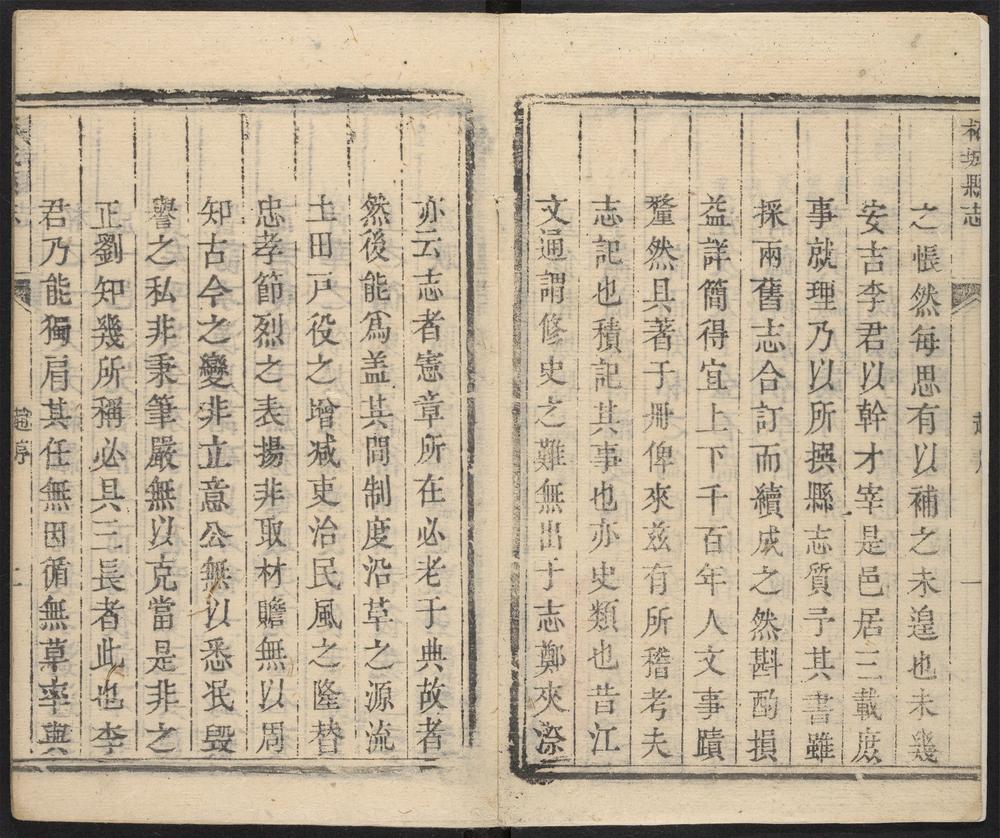 柘城縣志
之悵然每思有以補之未遑也未幾
安吉李君以幹才宰是邑居三載庶
事就理乃以所撰縣志質予其書雖
採兩舊志合訂而續成之然斟酌損
益詳簡得宜上下千百年人文事蹟
釐然具著于冊俾來兹有所稽考夫
志記也積記其事也亦史類也昔江
文通謂修史之難無出于志鄭夾漈
亦云志者憲章所在必老于典故者
然後能爲盖其間制度沿革之源流
土田戸役之增减吏治民風之隆替
忠孝節烈之表揚非取材贍無以周
知古今之變非立意公無以悉泯毀
譽之私非秉筆嚴無以克當是非之
正劉知幾所稱必具三長者此也李
君乃能獨肩其任無因循無草率與
趙序